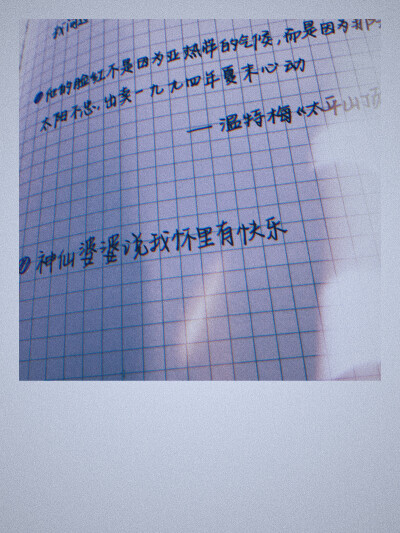 我们
●他的脸红不是因为亚热带的气候,而是因为那
太阳不忠,出卖一九九四年夏末心动
——温特梅《太平山顶
●神仙婆婆说我怀里有快乐